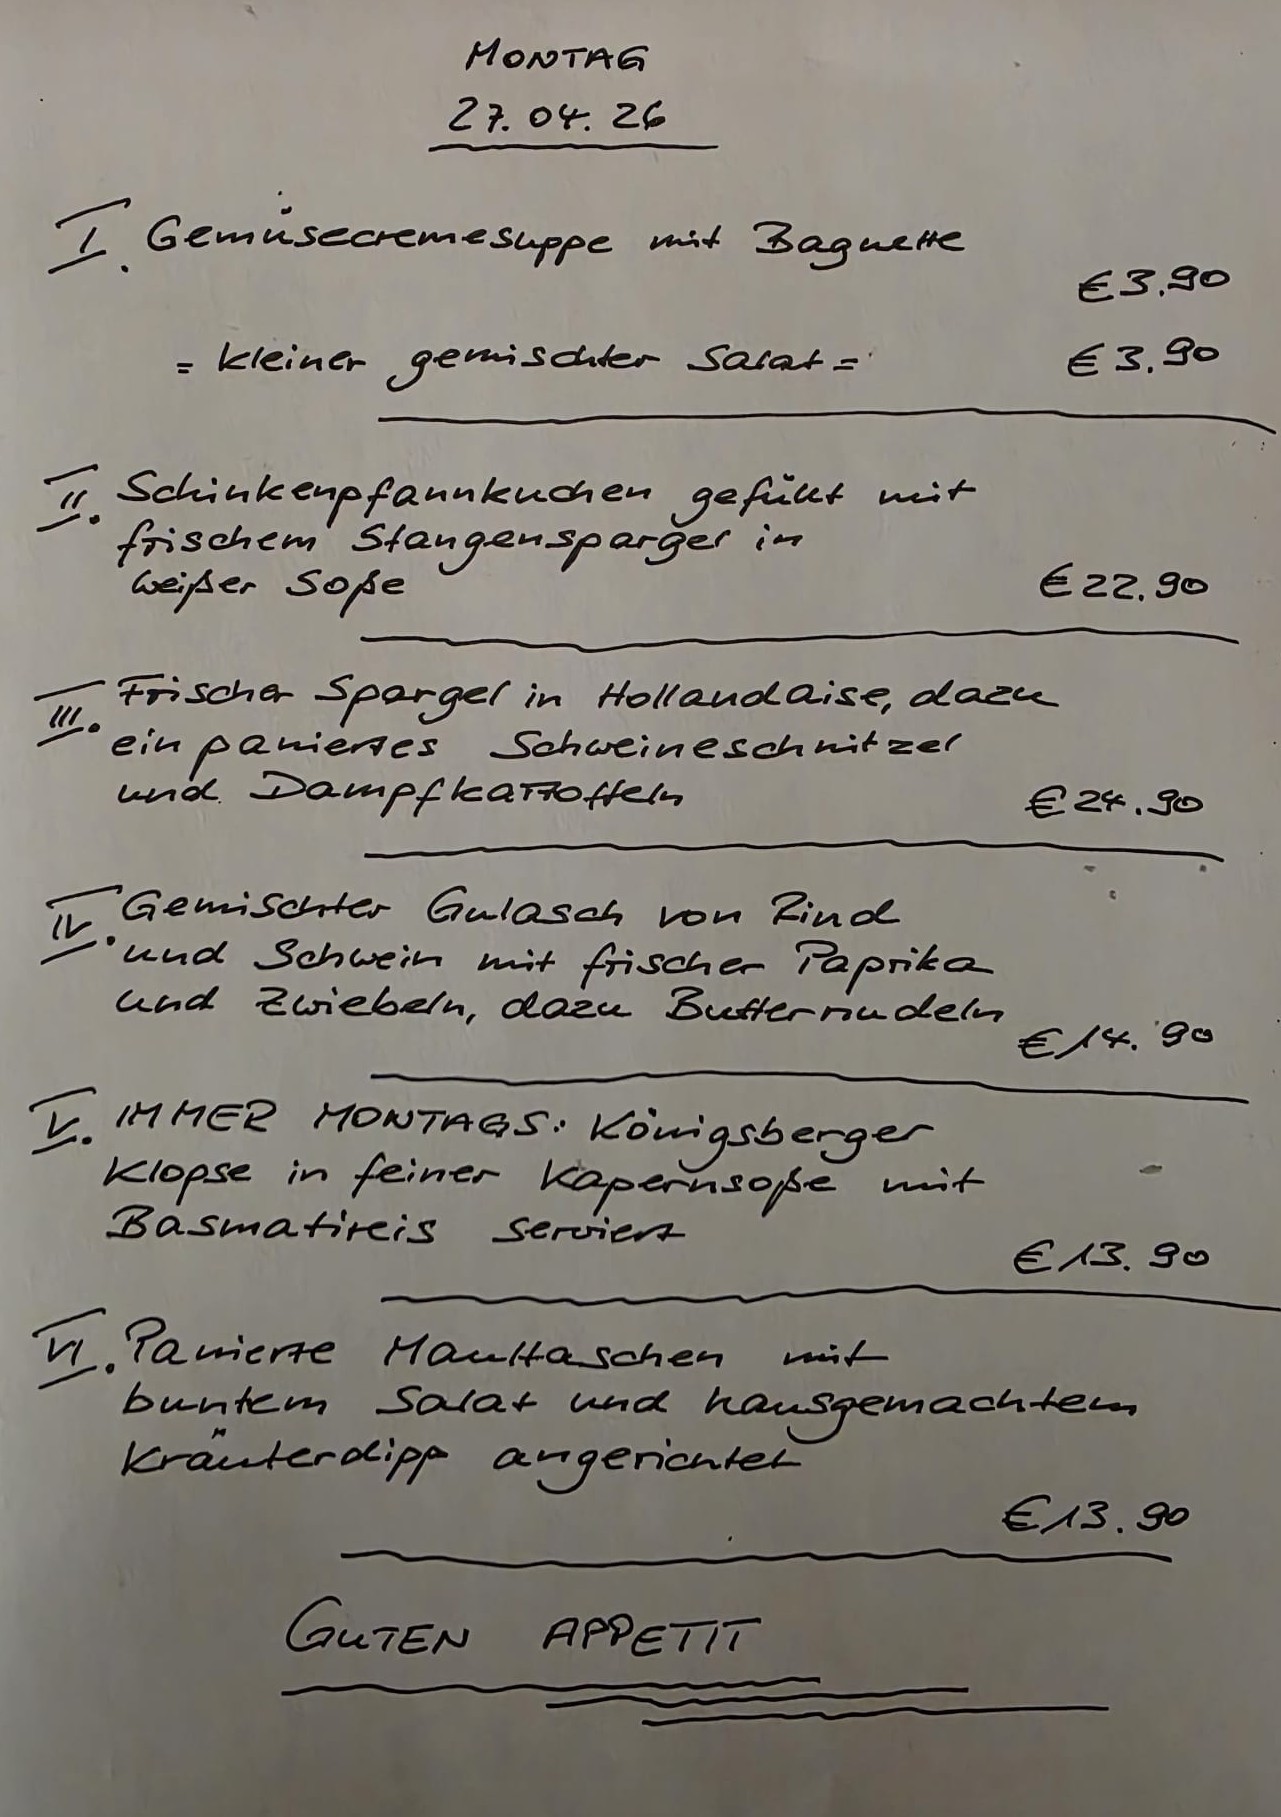 MONTAG
27.04.26
I. Gemüsecremesuppe mit Baguette
€ 3.90
= kleiner gemischter Salat = € 3.90
II. Schinkenpfannkuchen gefüllt mit
frischem Stangenspargel in
weißer Soße € 22.90
III. Frischer Spargel in Hollandaise, dazu
ein paniertes Schweineschnitzel
und Dampfkartoffeln € 24.90
IV. Gemischter Gulasch von Rind
und Schwein mit frischer Paprika
und Zwiebeln, dazu Butternudeln
€ 14.90
V. IMMER MONTAGS: Königsberger
Klopse in feiner Kapernsoße mit
Basmatireis serviert
€ 13.90
VI. Panierte Maultaschen mit
buntem Salat und hausgemachtem
Kräuterdipp angerichtet
€ 13.90
GUTEN APPETIT